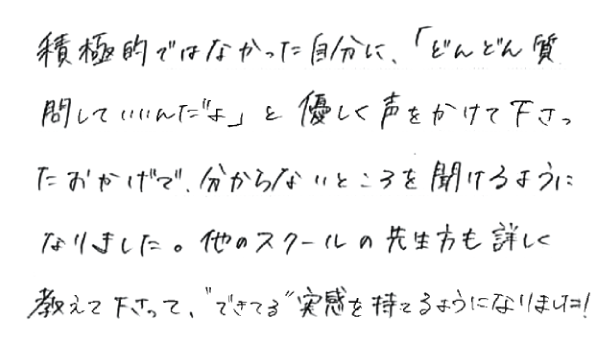 積極的ではなかった自分に、「どんどん質
問していいんだよ」と優しく声をかけて下さっ
たおかげで、分からないところを聞けるように
なりました。他のスクールの先生方も詳しく
教えて下さって、"できてる"実感を持てるようになりました!